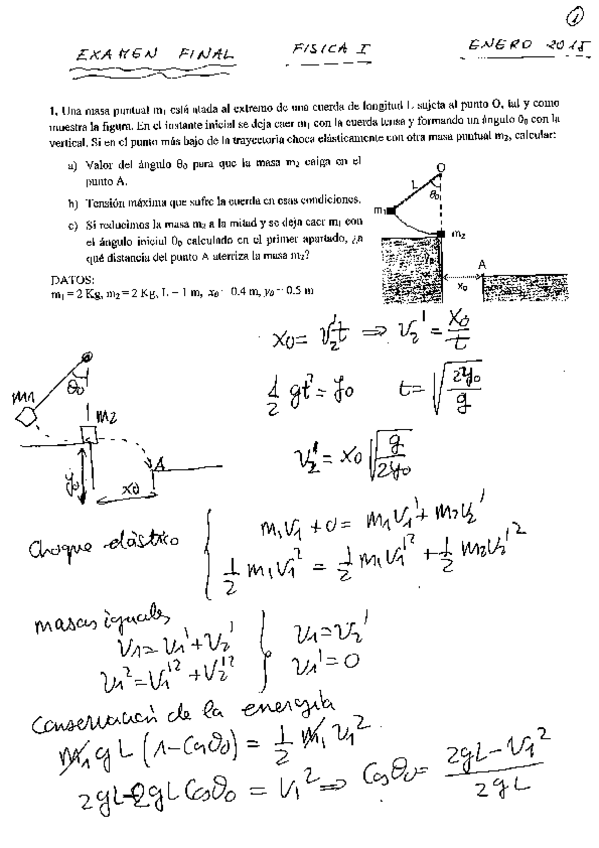 1
EXAMEN FINAL FISICA I ENERO 2015
1. Una masa puntual m₁ está atada al extremo de una cuerda de longitud L sujeta al punto O, tal y como
muestra la figura. En el instante inicial se deja caer m₁ con la cuerda tensa y formando un ángulo θ₀ con la
vertical. Si en el punto más bajo de la trayectoria choca elásticamente con otra masa puntual m₂, calcular:
a) Valor del ángulo θ₀ para que la masa m₂ caiga en el
punto A.
b) Tensión máxima que sufre la cuerda en esas condiciones.
c) Si reducimos la masa m₂ a la mitad y se deja caer m₁ con
el ángulo inicial θ₀ calculado en el primer apartado, ¿a
qué distancia del punto A aterriza la masa m₂?
DATOS:
m₁ = 2 Kg, m₂ = 2 Kg, L = 1 m, x₀ = 0.4 m, y₀ = 0.5 m
O
L
θ₀
m₁
m₂
A
x₀
x₀ = v₂' t ⇒ v₂' = x₀/t
1/2 gt² = y₀ t = √(2y₀/g)
v₂' = x₀ √(g/2y₀)
θ₀
m₁
m₂
y₀
x₀
A
Choque elástico
m₁v₁ + 0 = m₁v₁' + m₂v₂'
1/2 m₁v₁² = 1/2 m₁v₁'² + 1/2 m₂v₂'²
masas iguales
v₁ = v₁' + v₂' v₁ = v₂'
v₁² = v₁'² + v₂'² v₁' = 0
Conservación de la energía
m₁gL (1 - Cosθ₀) = 1/2 m₁ v₁²
2gL - 2gL Cosθ₀ = v₁² ⇒ Cosθ₀ = (2gL - v₁²)/2gL